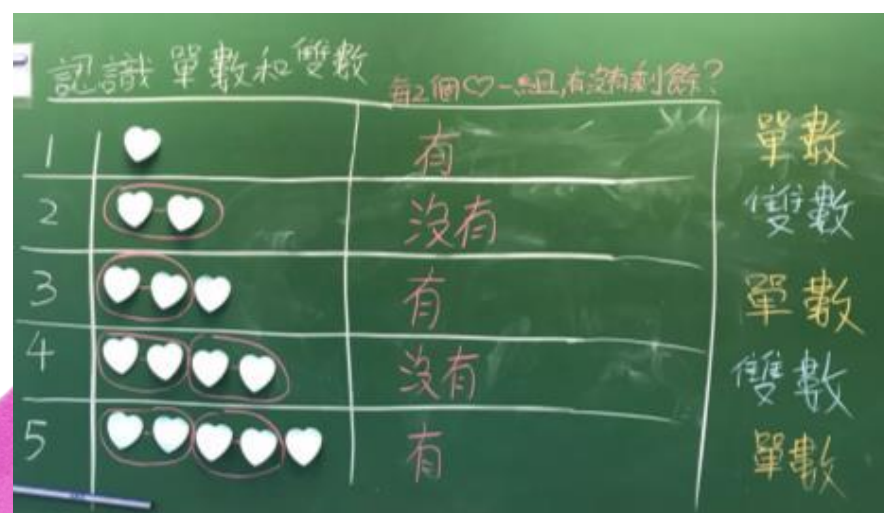 認識 單數和雙數
每2個♡一組,有沒有剩餘?
1 有 單數
2 沒有 雙數
3 有 單數
4 沒有 雙數
5 有 單數